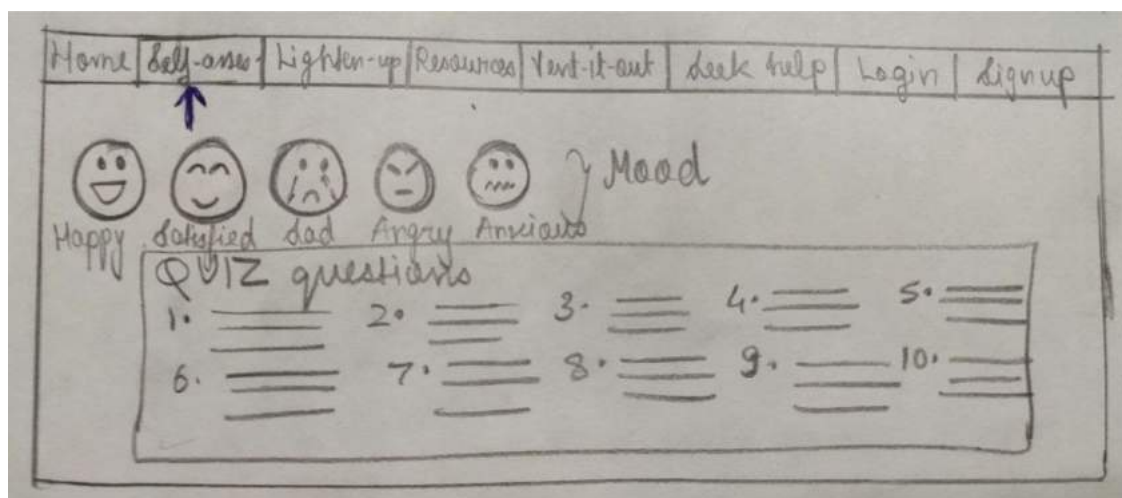 Home Self-asses- Lighten-up Resources Vent-it-out Seek help Login Signup
Mood
Happy Satisfied Sad Angry Anxious
QUIZ questions
1. 2. 3. 4. 5.
6. 7. 8. 9. 10.